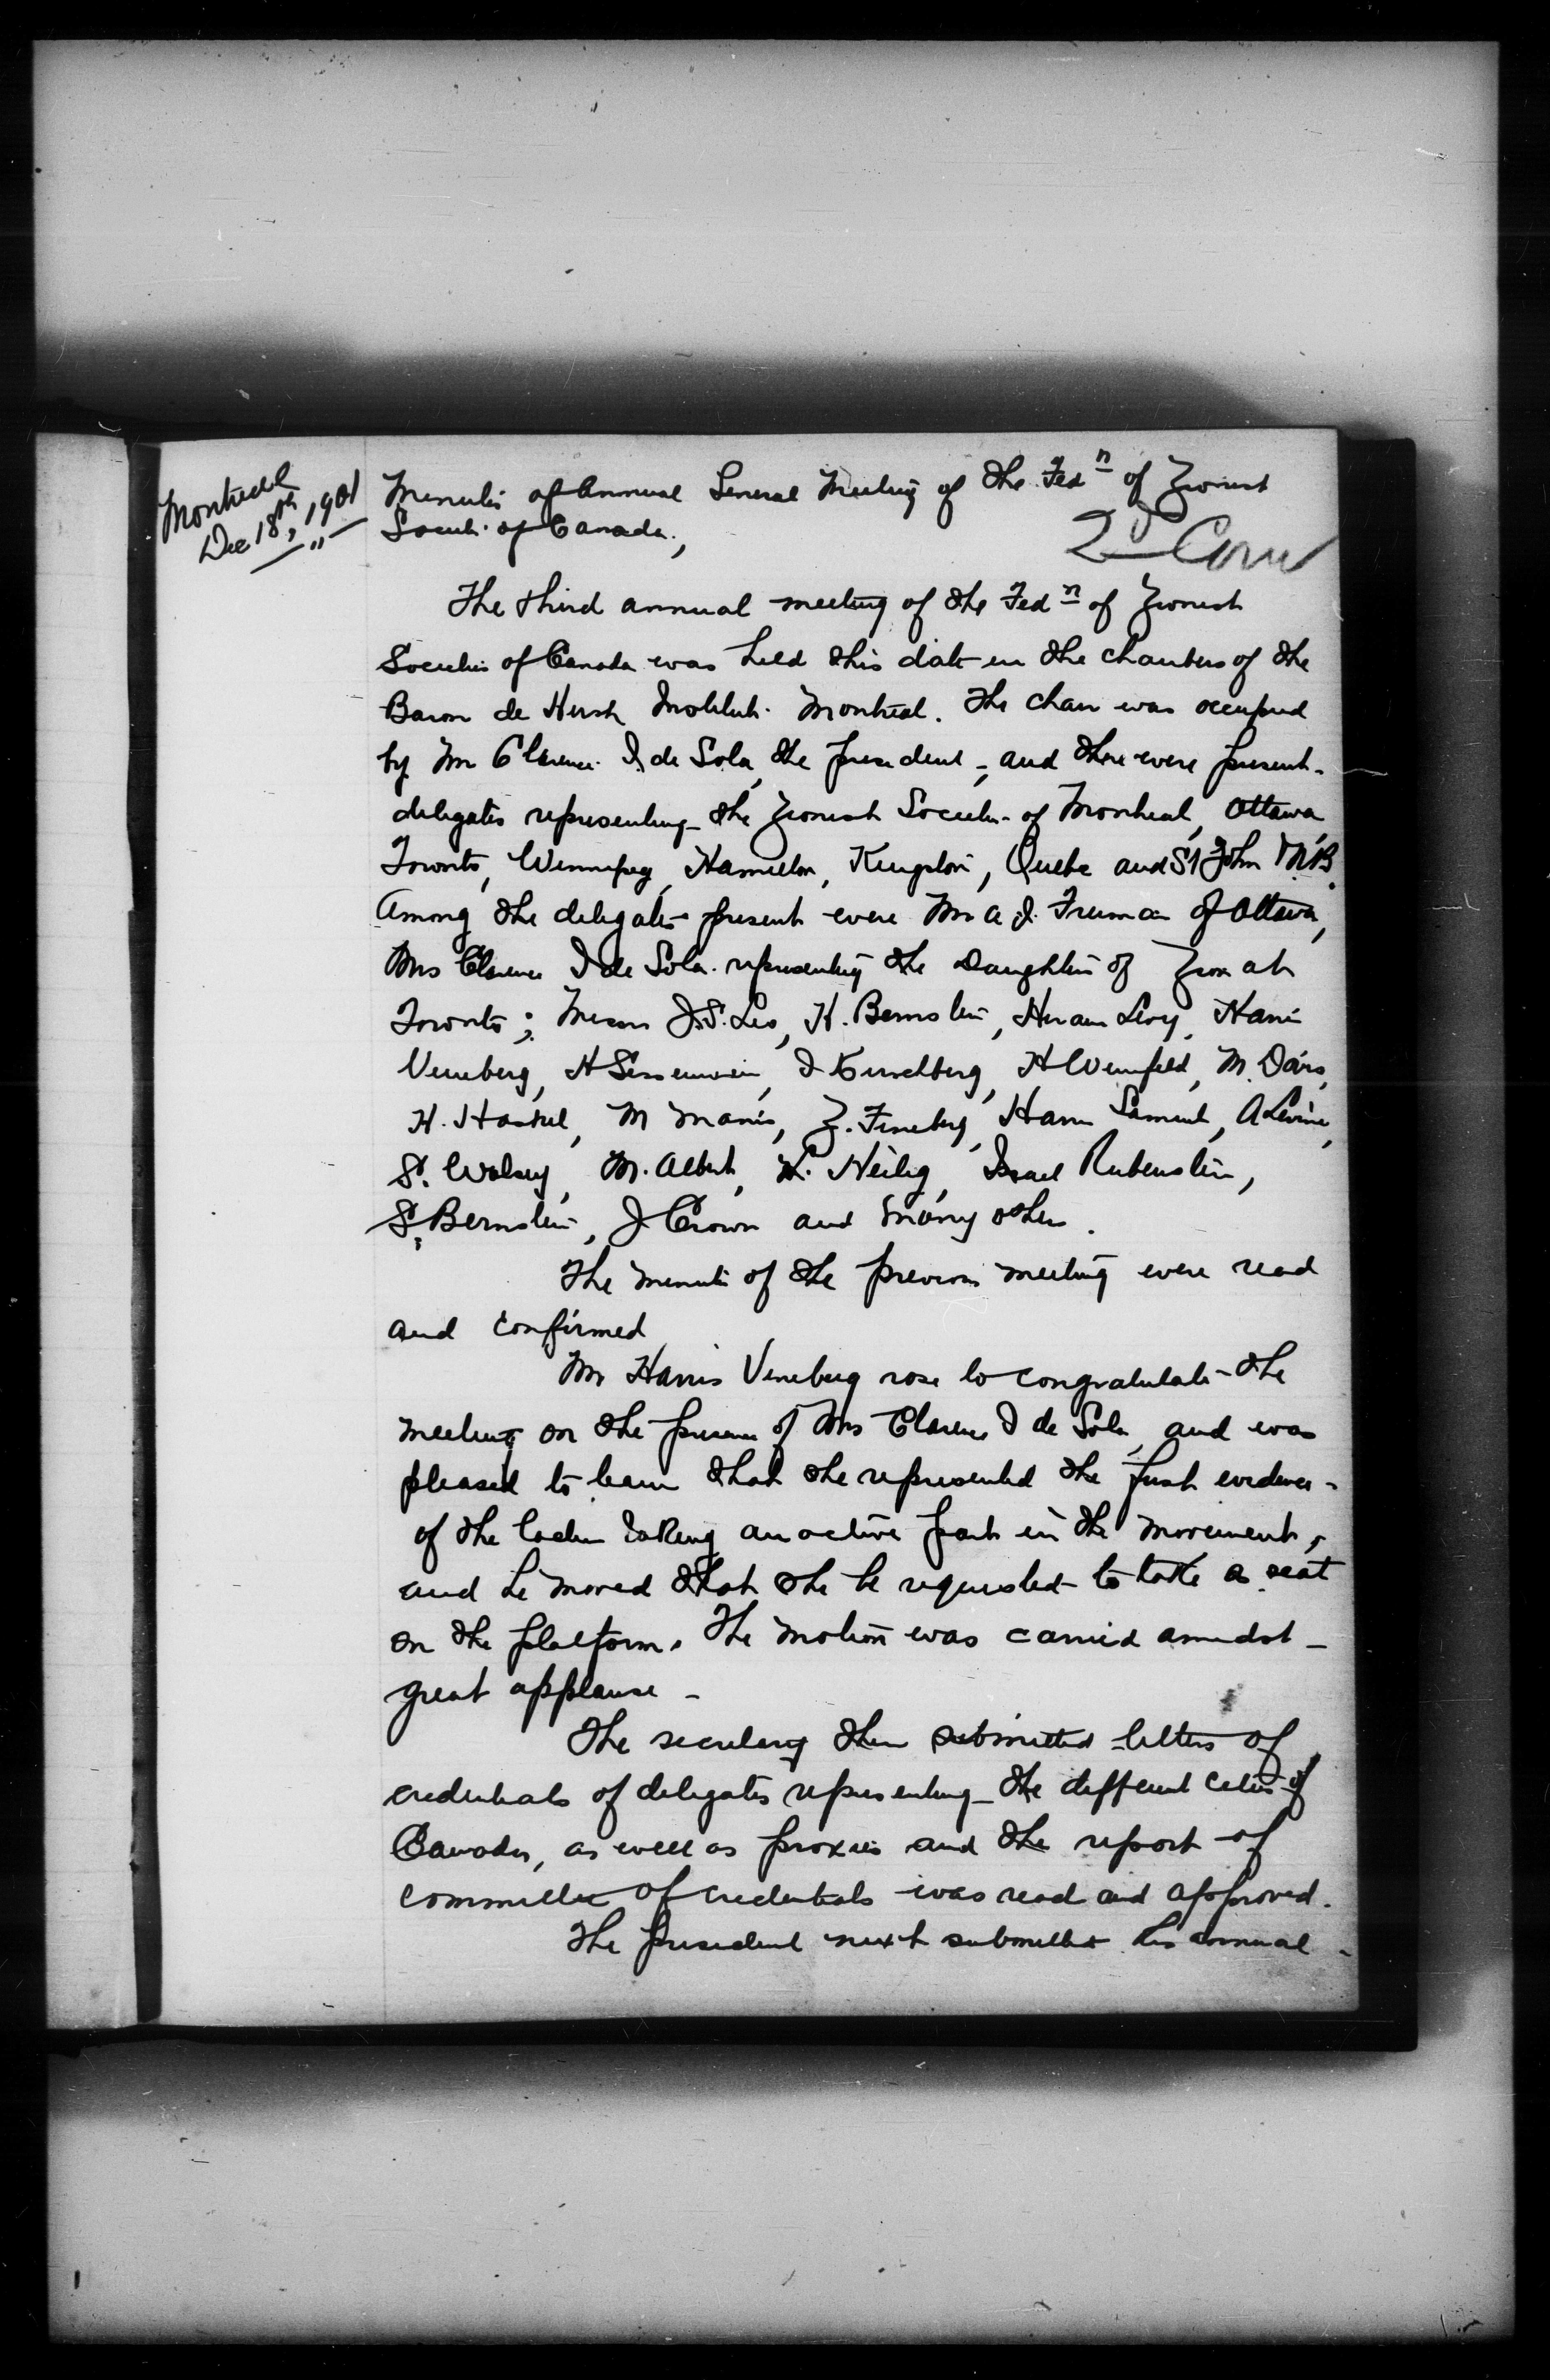 Montreal
Dec 18th, 1901
Minutes of Annual General Meeting of the Fedn of Zionist
Societies of Canada,
2d Conv
The third annual meeting of the Fedn of Zionist
Societies of Canada was held this date in the chambers of the
Baron de Hirsh Institute Montreal. The chair was occupied
by Mr Clarence I. de Sola, the president, and there were present
delegates representing the Zionist Societies of Montreal, Ottawa
Toronto, Winnipeg, Hamilton, Kingston, Quebec and St John N.B.
Among the delegates present were Mr A. J. Freiman of Ottawa,
Mrs Clarence I de Sola representing the Daughters of Zion at
Toronto; Messrs J.S. Leo, H. Bernstein, Hiram Levy, Harris
Vineberg, H Sessenwein, I Kirschberg, H Weinfield, M. Davis,
H. Haskel, M Manis, Z. Fineberg, Harris Samuel, A Levine,
S. Wolsey, M. Albert, H. Heilig, Israel Rubenstein,
S. Bernstein, J. Crown and many others.
The minutes of the previous meeting were read
and confirmed
Mr Harris Vineberg rose to congratulate the
meeting on the presence of Mrs Clarence I de Sola, and was
pleased to learn that she represented the first evidence
of the ladies taking an active part in the movement,
and he moved that she be requested to take a seat
on the platform. The motion was carried amidst
great applause
The secretary then submitted letters of
credentials of delegates representing the different cities of
Canada, as well as proxies and the report of
committee of credentials was read and approved.
The president next submitted his annual